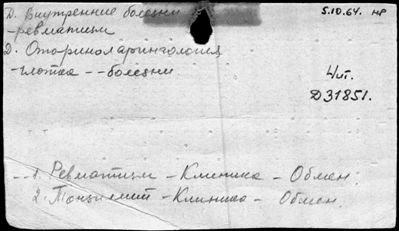 Д. Внутренние болезни
5.10.64. нр
-ревматизм
Д. Оториноларингология
-глотка - -болезни
Чит.
Д31851.
1. Ревматизм - Клиника - Обмен.
2. Тонзиллит - Клиника - Обмен.